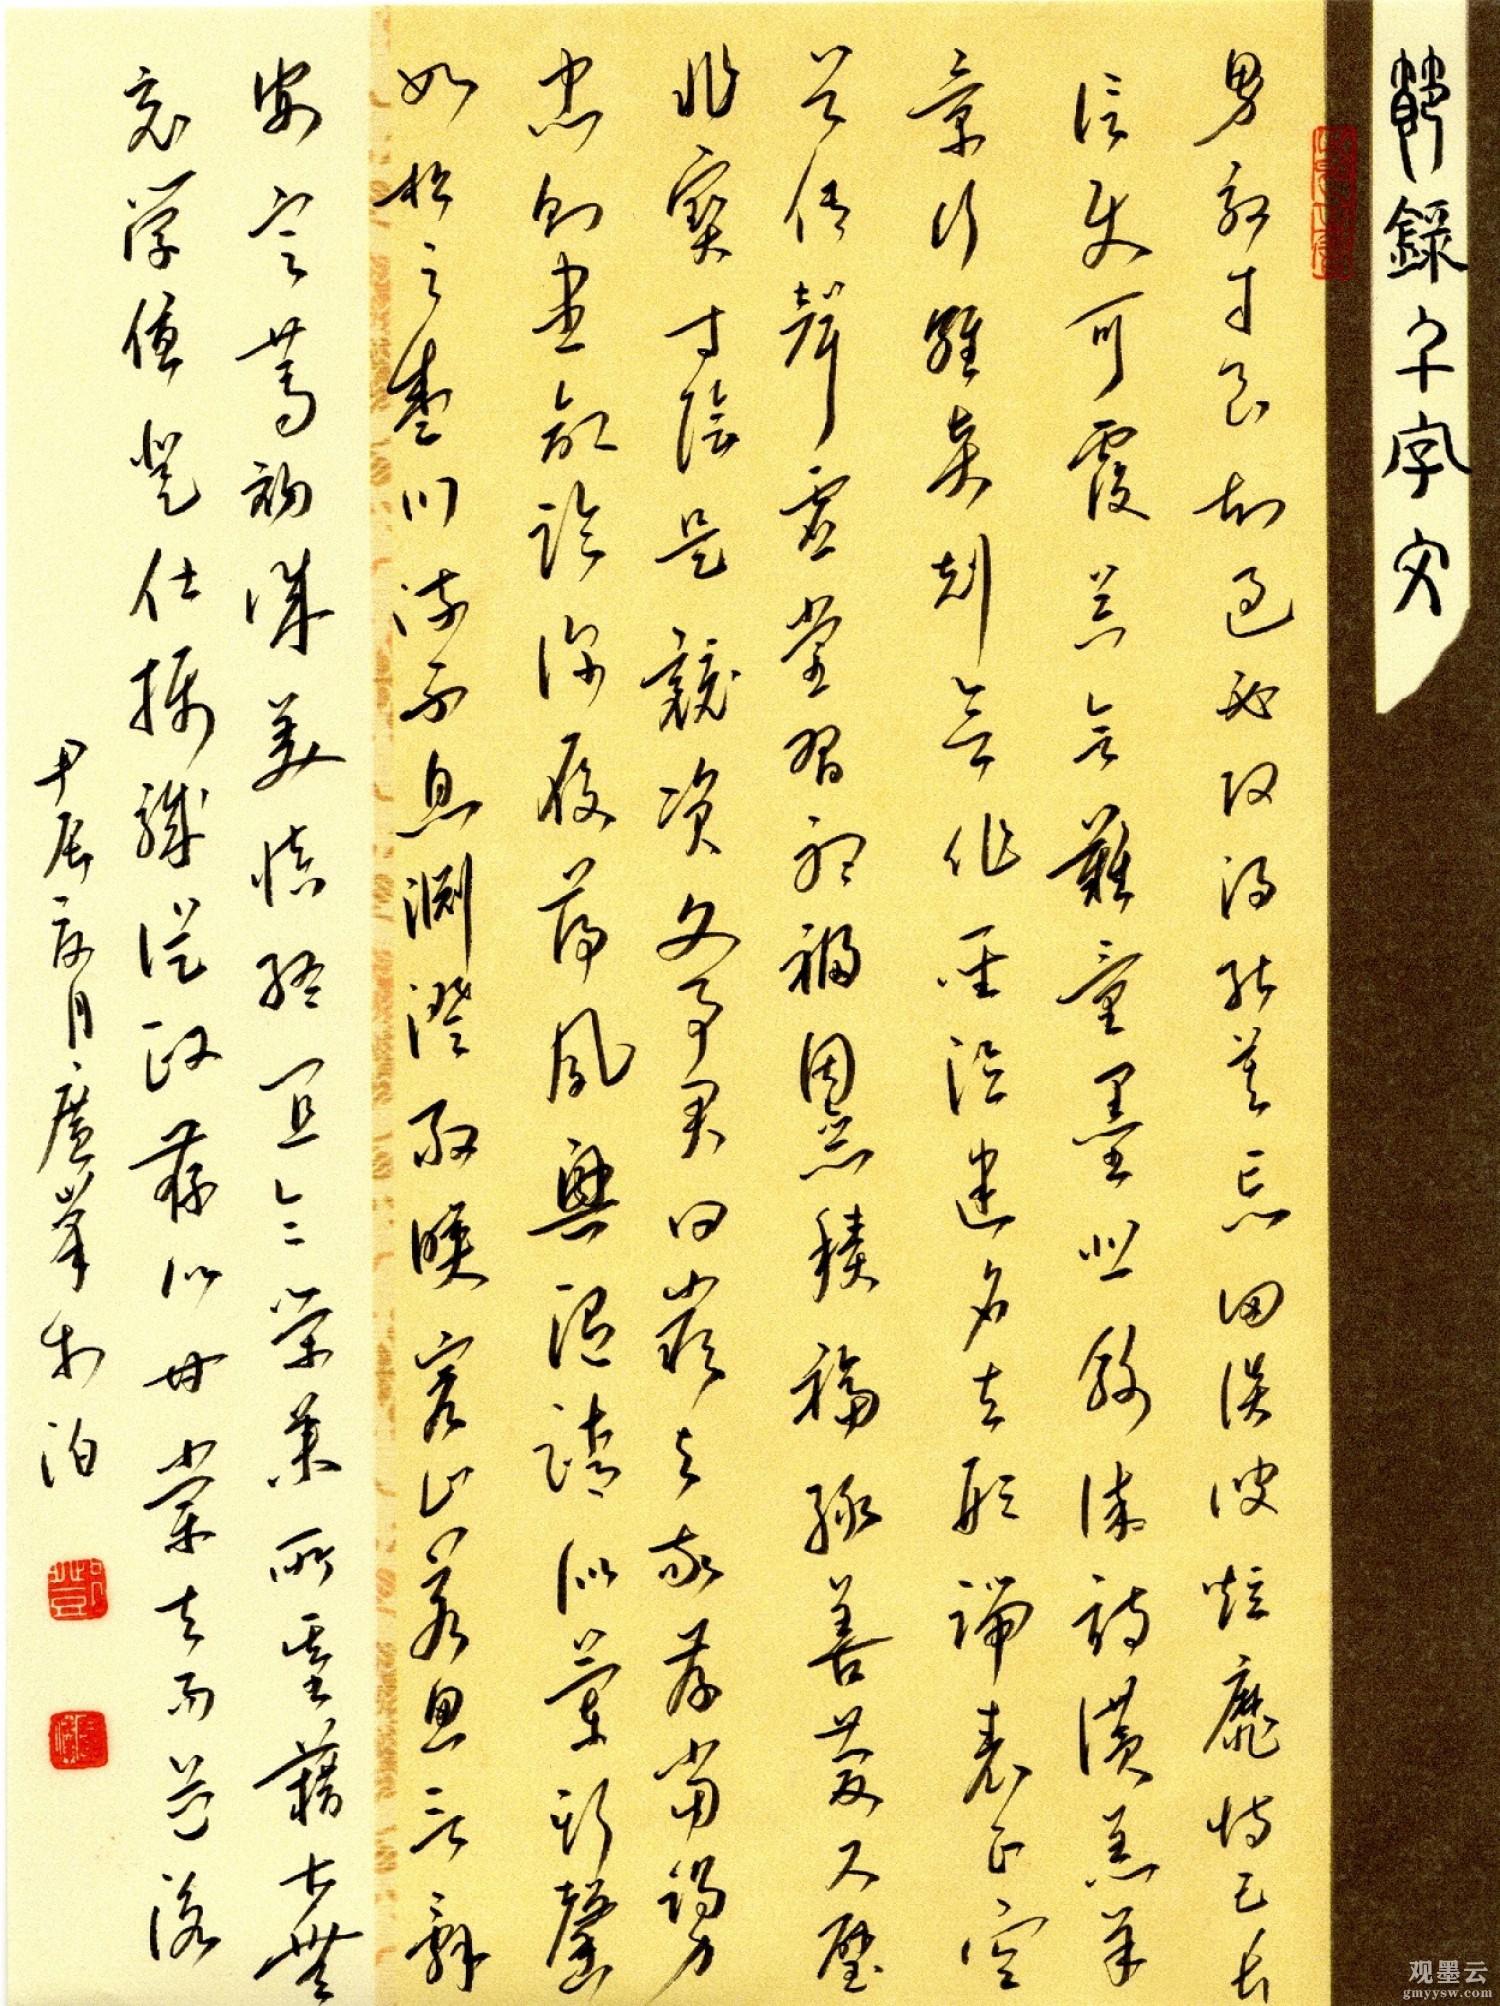 節錄千字文
男效才良知過必改得能莫忘罔談彼短靡恃己長
信使可覆器欲難量墨悲絲染詩讚羔羊
景行維賢剋念作聖德建名立形端表正空
谷傳聲虛堂習聽禍因惡積福緣善慶尺璧
非寶寸陰是競資父事君曰嚴與敬孝當竭力
忠則盡命臨深履薄夙興溫凊似蘭斯馨
如松之盛川流不息淵澄取映容止若思言辭
安定篤初誠美慎終宜令榮業所基籍甚無
竟學優登仕攝職從政存以甘棠去而益詠
甲辰夏月廣峯於泊
观墨云
gmyysw.com